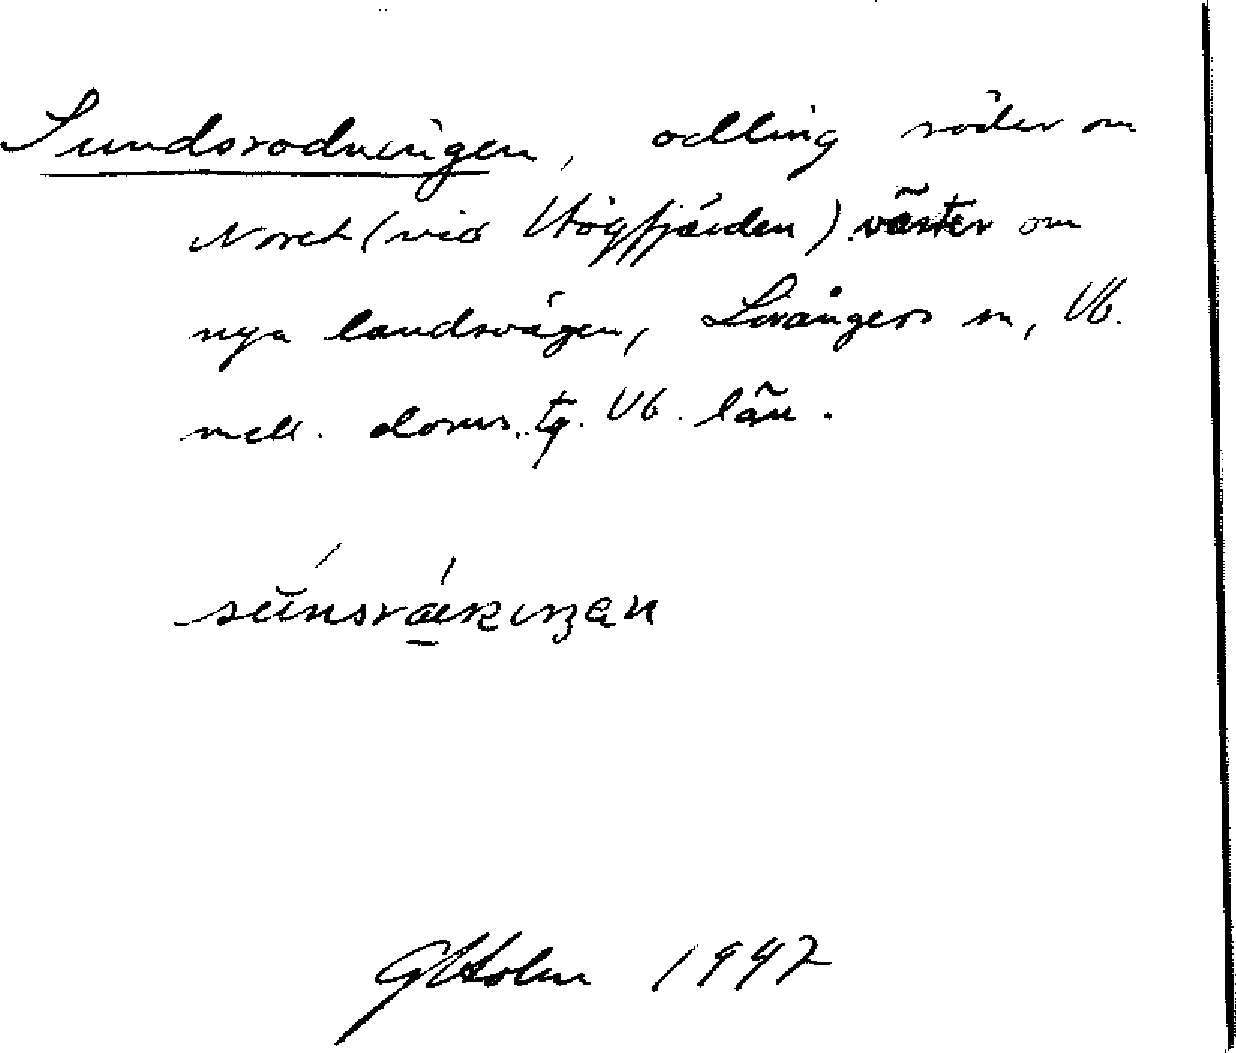 Sundsrodningen, odling söder om
Noret (vid Högfjärden) väster om
nya landsvägen, Lövångers sn, Vb.
mell. doms. tg. Vb. län.
GHolm 1947